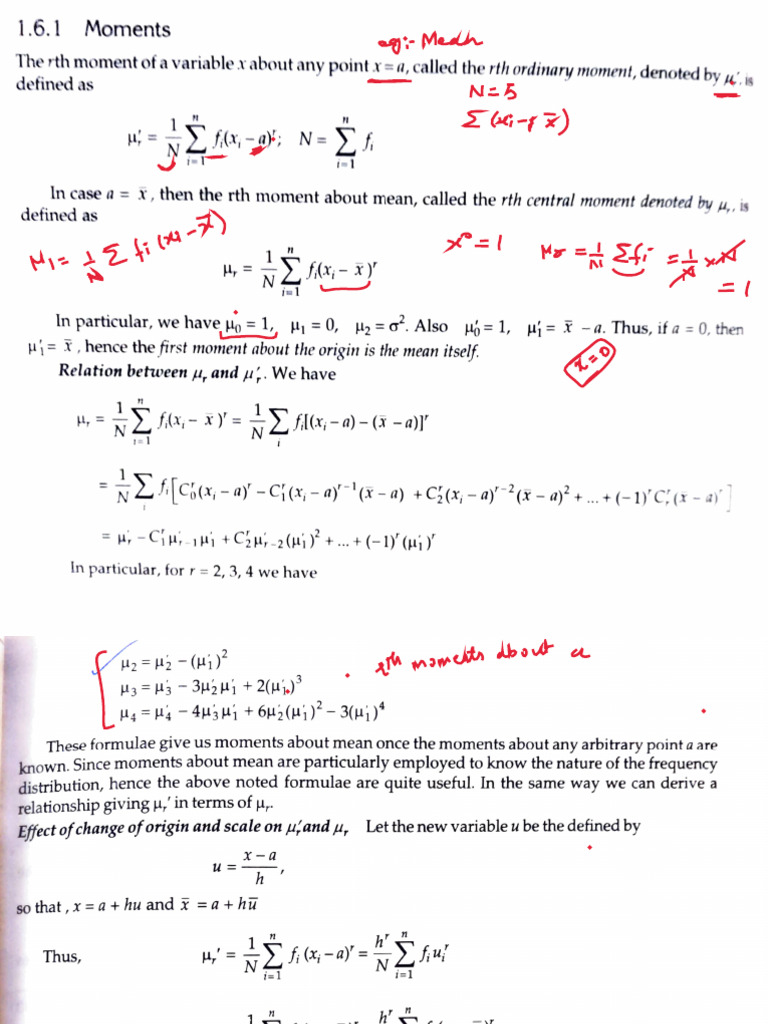 1.6.1 Moments
eg:- Medh
The rth moment of a variable x about any point x = a, called the rth ordinary moment, denoted by μ′, is
defined as
N = 5
μ′ᵣ = 1/N ∑ᵢ₌₁ⁿ fᵢ(xᵢ – a)ʳ; N = ∑ᵢ₌₁ⁿ fᵢ
In case a = x̄, then the rth moment about mean, called the rth central moment denoted by μᵣ, is
defined as
μ₁ = 1/N ∑ fᵢ (xᵢ – x̄)
x⁰ = 1
μᵣ = 1/N ∑fᵢ = 1/N × N
= 1
μᵣ = 1/N ∑ᵢ₌₁ⁿ fᵢ(xᵢ – x̄)ʳ
In particular, we have μ₀ = 1, μ₁ = 0, μ₂ = σ². Also μ′₀ = 1, μ′₁ = x̄ – a. Thus, if a = 0, then
μ′₁ = x̄, hence the first moment about the origin is the mean itself.
Relation between μᵣ and μ′ᵣ. We have
μᵣ = 1/N ∑ᵢ₌₁ⁿ fᵢ(xᵢ – x̄)ʳ = 1/N ∑ᵢ fᵢ[(xᵢ – a) – (x̄ – a)]ʳ
= 1/N ∑ᵢ fᵢ[Cʳ₀(xᵢ – a)ʳ – Cʳ₁(xᵢ – a)ʳ⁻¹(x̄ – a) + Cʳ₂(xᵢ – a)ʳ⁻²(x̄ – a)² + ... + (–1)ʳ Cʳᵣ(x̄ – a)ʳ]
= μ′ᵣ – Cʳ₁μ′ᵣ₋₁μ′₁ + Cʳ₂μ′ᵣ₋₂(μ′₁)² + ... + (–1)ʳ(μ′₁)ʳ
In particular, for r = 2, 3, 4 we have
rth moments about a
μ₂ = μ′₂ – (μ′₁)²
μ₃ = μ′₃ – 3μ′₂μ′₁ + 2(μ′₁)³
μ₄ = μ′₄ – 4μ′₃μ′₁ + 6μ′₂(μ′₁)² – 3(μ′₁)⁴
These formulae give us moments about mean once the moments about any arbitrary point a are
known. Since moments about mean are particularly employed to know the nature of the frequency
distribution, hence the above noted formulae are quite useful. In the same way we can derive a
relationship giving μᵣ′ in terms of μᵣ.
Effect of change of origin and scale on μ′ᵣ and μᵣ Let the new variable u be the defined by
u = (x – a)/h,
so that, x = a + hu and x̄ = a + hū
Thus, μᵣ′ = 1/N ∑ᵢ₌₁ⁿ fᵢ (xᵢ – a)ʳ = hʳ/N ∑ᵢ₌₁ⁿ fᵢuᵢʳ